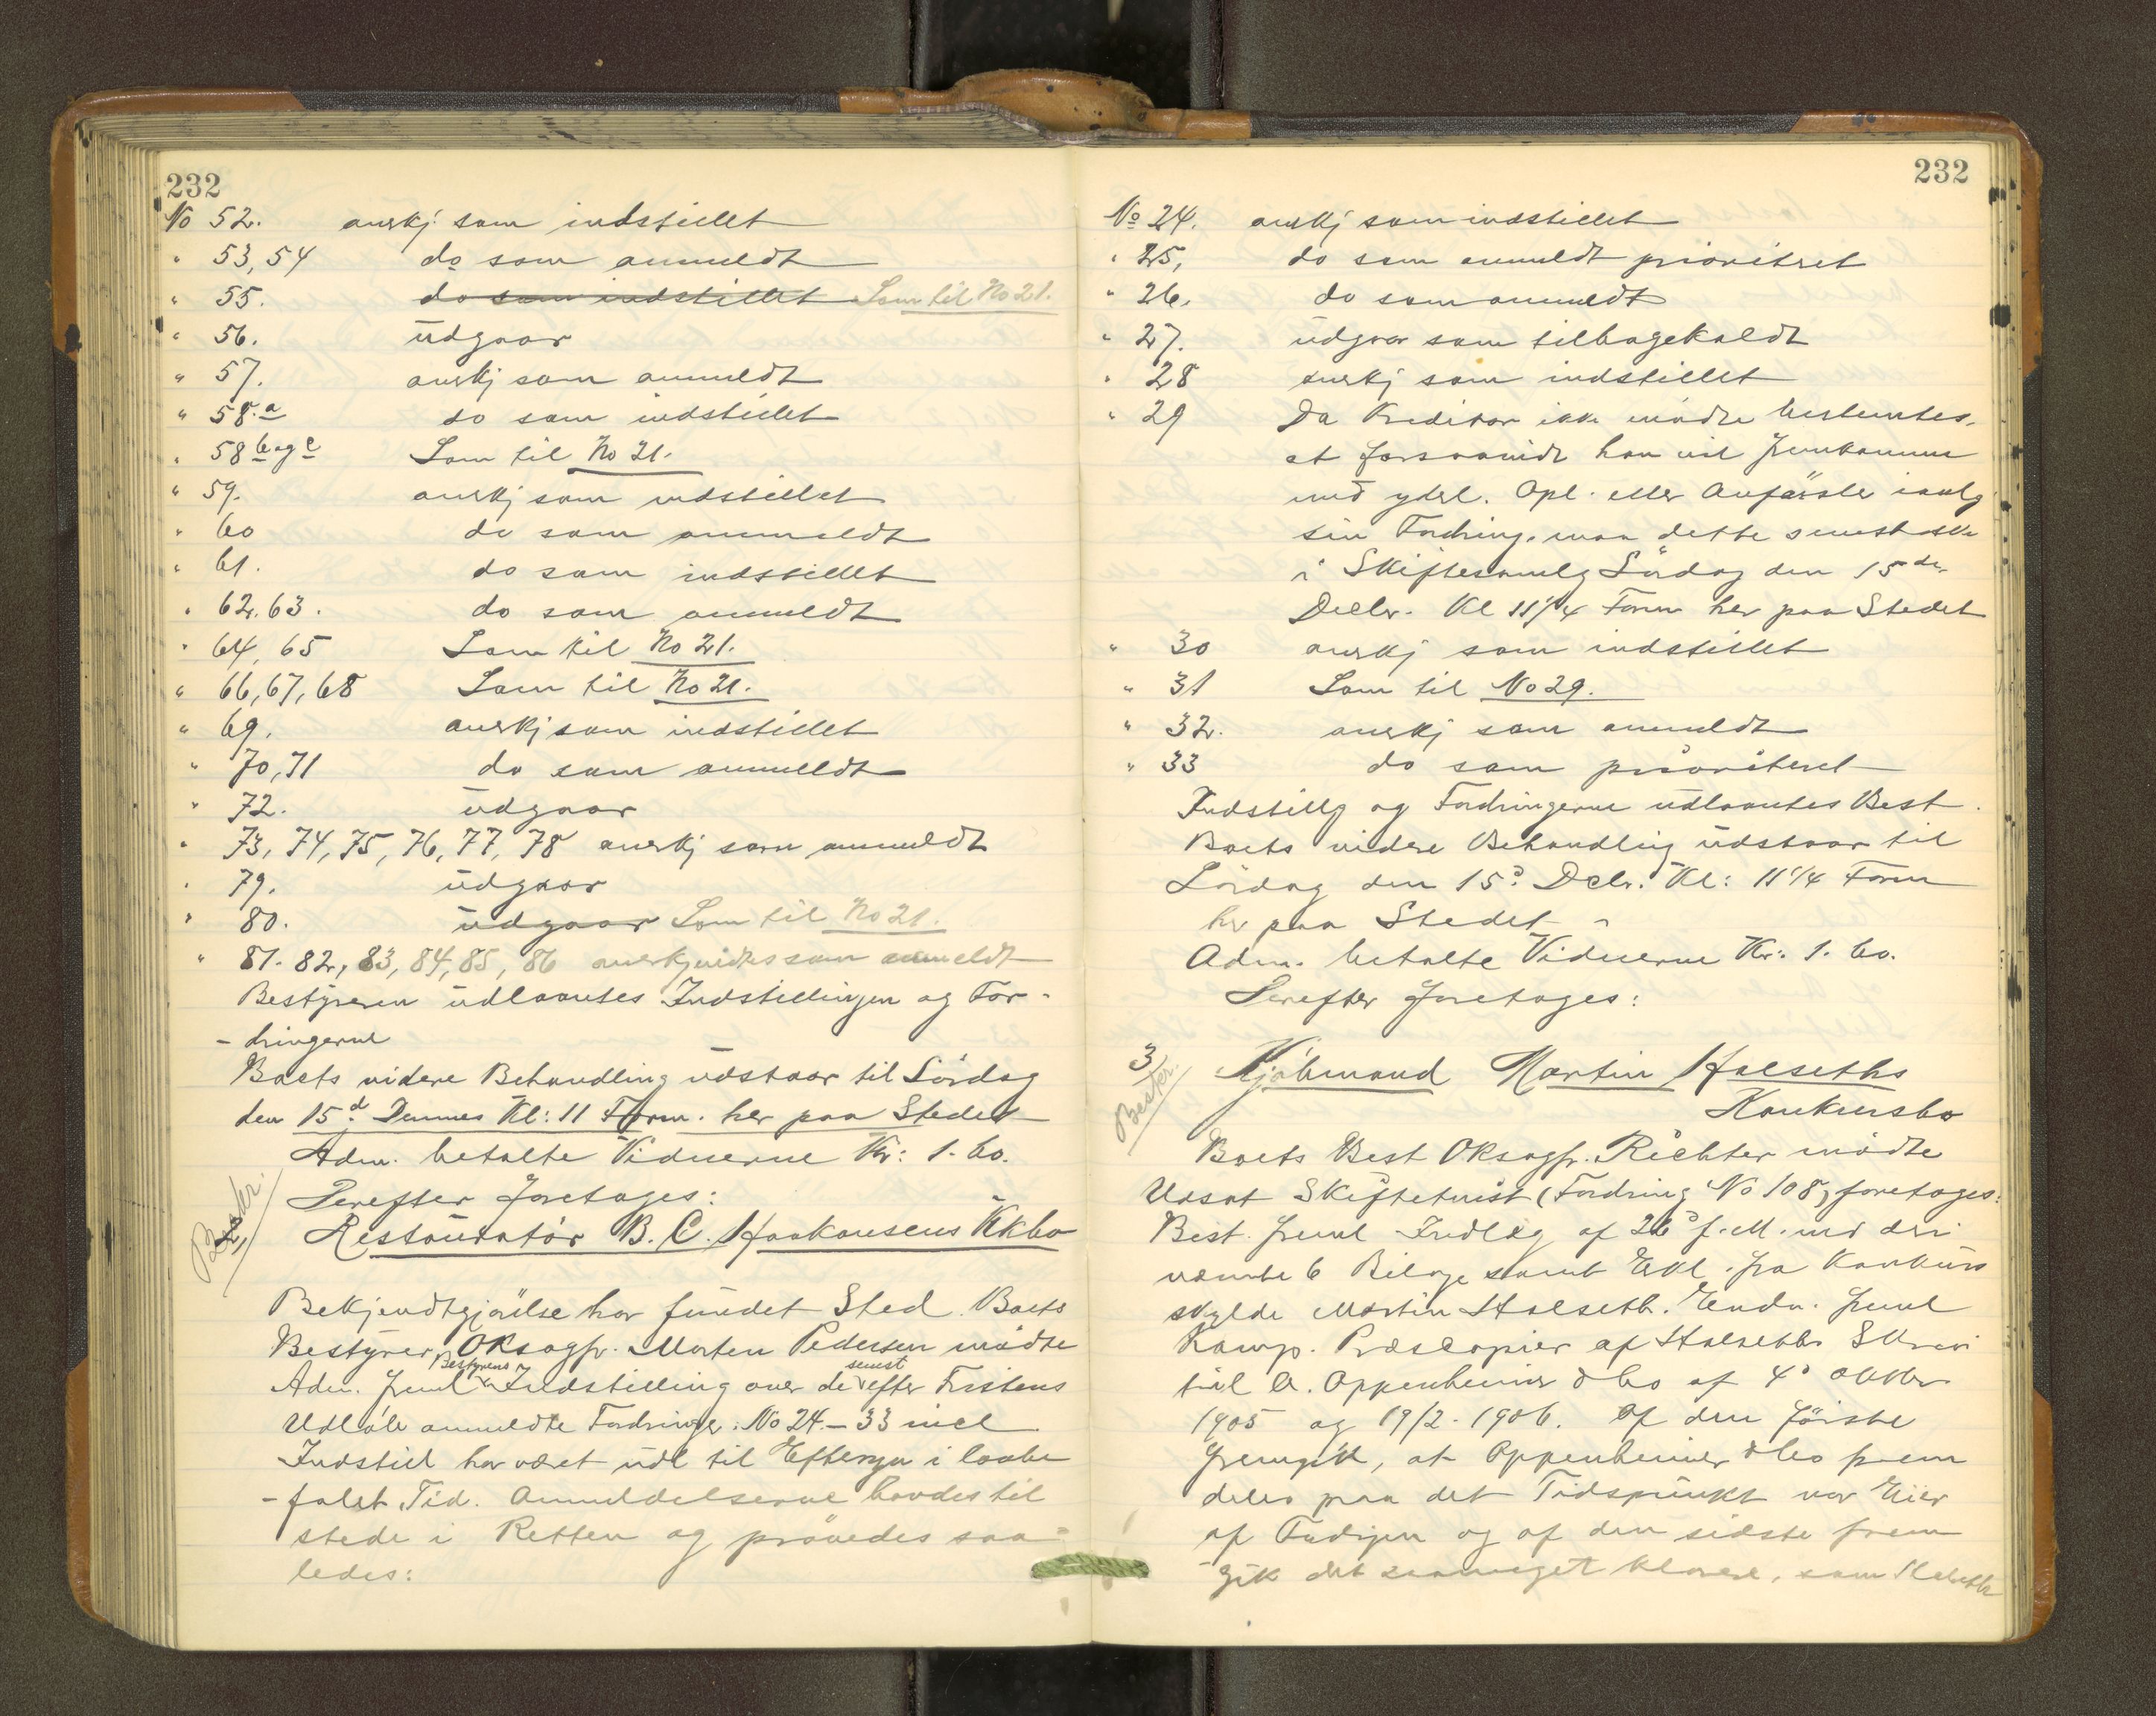 232
No 52. anerkj som indstillet
" 53, 54 do som anmeldt
" 55. do som indstillet Som til No 21.
" 56. udgaar
" 57. anerkj som anmeldt
" 58.a do som indstillet
" 58 b og c Som til No 21.
" 59. anerkj som indstillet
" 60 do som anmeldt
" 61. do som indstillet
" 62. 63. do som anmeldt
" 64, 65 Som til No 21.
" 66, 67, 68 Som til No 21.
" 69. anerkj som indstillet
" 70, 71 do som anmeldt
" 72. udgaar
" 73, 74, 75, 76, 77, 78 anerkj som anmeldt
" 79. udgaar
" 80. udgaar Som til No 21.
" 81. 82, 83, 84, 85, 86 anerkjendtes som anmeldt
Bestyreren udlaantes Indstillingen og For-
-dringerne
Boets videre Behandling udstaar til Lördag
den 15d. Dennes Kl: 11 Form. her paa Stedet
Adm. betalte Vidnerne Kr: 1. 60.
Derefter foretoges:
2 Beskr.
Restauratör B. C. Haakonsens Kkbo
Bekjendtgjörelse har fundet Sted. Boets
Bestyrer, OKsagfr. Morten Pedersen mödte
Adm. freml Bestyrens Indstilling over de senest efter Fristens
Udlöb anmeldte Fordringer: No 24 - 33 incl
Indstill har været udl til Eftersyn i lovbe
-falet Tid. Anmeldelserne havdes til
stede i Retten og prövedes saa=
ledes:
232
No 24. anerkj som indstillet
" 25, do som anmeldt prioriteret
" 26. do som anmeldt
" 27. udgaar som tilbagekaldt
" 28 anerkj som indstillet
" 29 Da Kreditor ikke mödte bestemtes,
at forsaavidt han vil fremkomme
med yderl. Opl. eller Anförsler ianlg
sin Fordring, maa dette senest ske
i Skiftesamlg Lördag den 15de
Decbr. Kl 11 1/4 Form her paa Stedet
" 30 anerkj som indstillet
" 31 Som til No 29.
" 32. anerkj som anmeldt
" 33 do som prioriteret
Indstillg og Fordringerne udlaantes Best.
Boets videre Behandling udstaar til
Lördag den 15d. Dcbr. Kl: 11 1/4 Form
her paa Stedet
Adm. betalte Vidnerne Kr: 1. 60.
Derefter foretoges:
3 Beskr.
Kjöbmand Martin Halseths
Konkursbo
Boets Best OKsagfr. Richter mödte
Udsat Skiftetvist (Fordring No 108) foretoges:
Best. freml Indlæg af 26d f. M. med deri
nævnte 6 Bilage samt Erkl. fra Konkurs
skyldn Martin Halseth. Endv. freml
Komp. Præskopier af Halseths Skriv
til A. Oppenheimer & Co af 4d Oktbr
1905 og 19/2. 1906. Af den förste
fremgik, at Oppenheimer & Co frem
deles paa det Tidspunkt var Eier
af og af den sidste frem
gik det saameget klarere, som Halseth